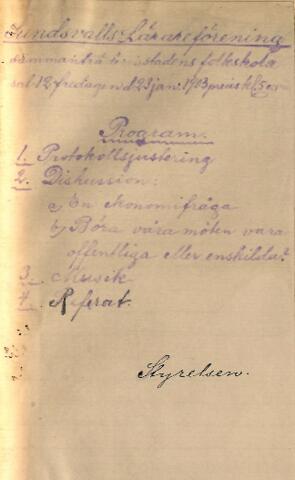 Sundsvalls Lärareförening
sammanträder i stadens folkskola
sal 12 fredagen d 23 jan. 1903 präis kl. 5 e.m.
Program.
1. Protokollsjustering
2. Diskussion:
a) En ekonomifråga
b) Böra våra möten vara
offentliga eller enskilda?
3. Musik
4. Referat.
Styrelsen.